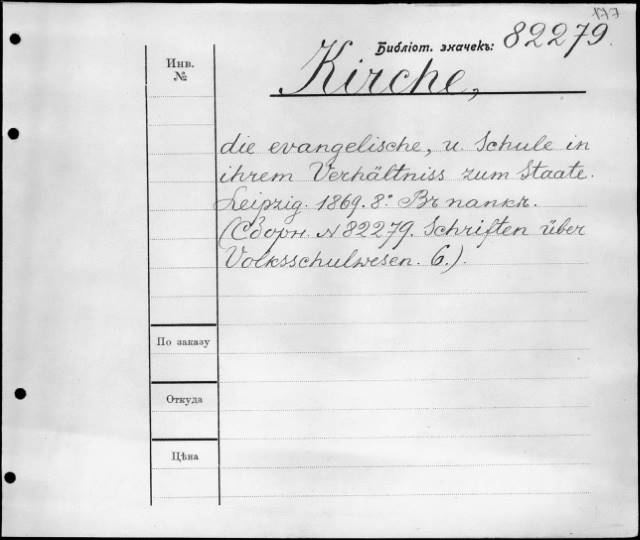 Библіот. значекъ: 82279.
Kirche,
Инв.
№
die evangelische, u. Schule in
ihrem Verhältniss zum Staate.
Leipzig. 1869. 8º Въ папкѣ.
(Сборн. N 82279. Schriften über
Volksschulwesen. 6.).
По заказу
Откуда
Цѣна